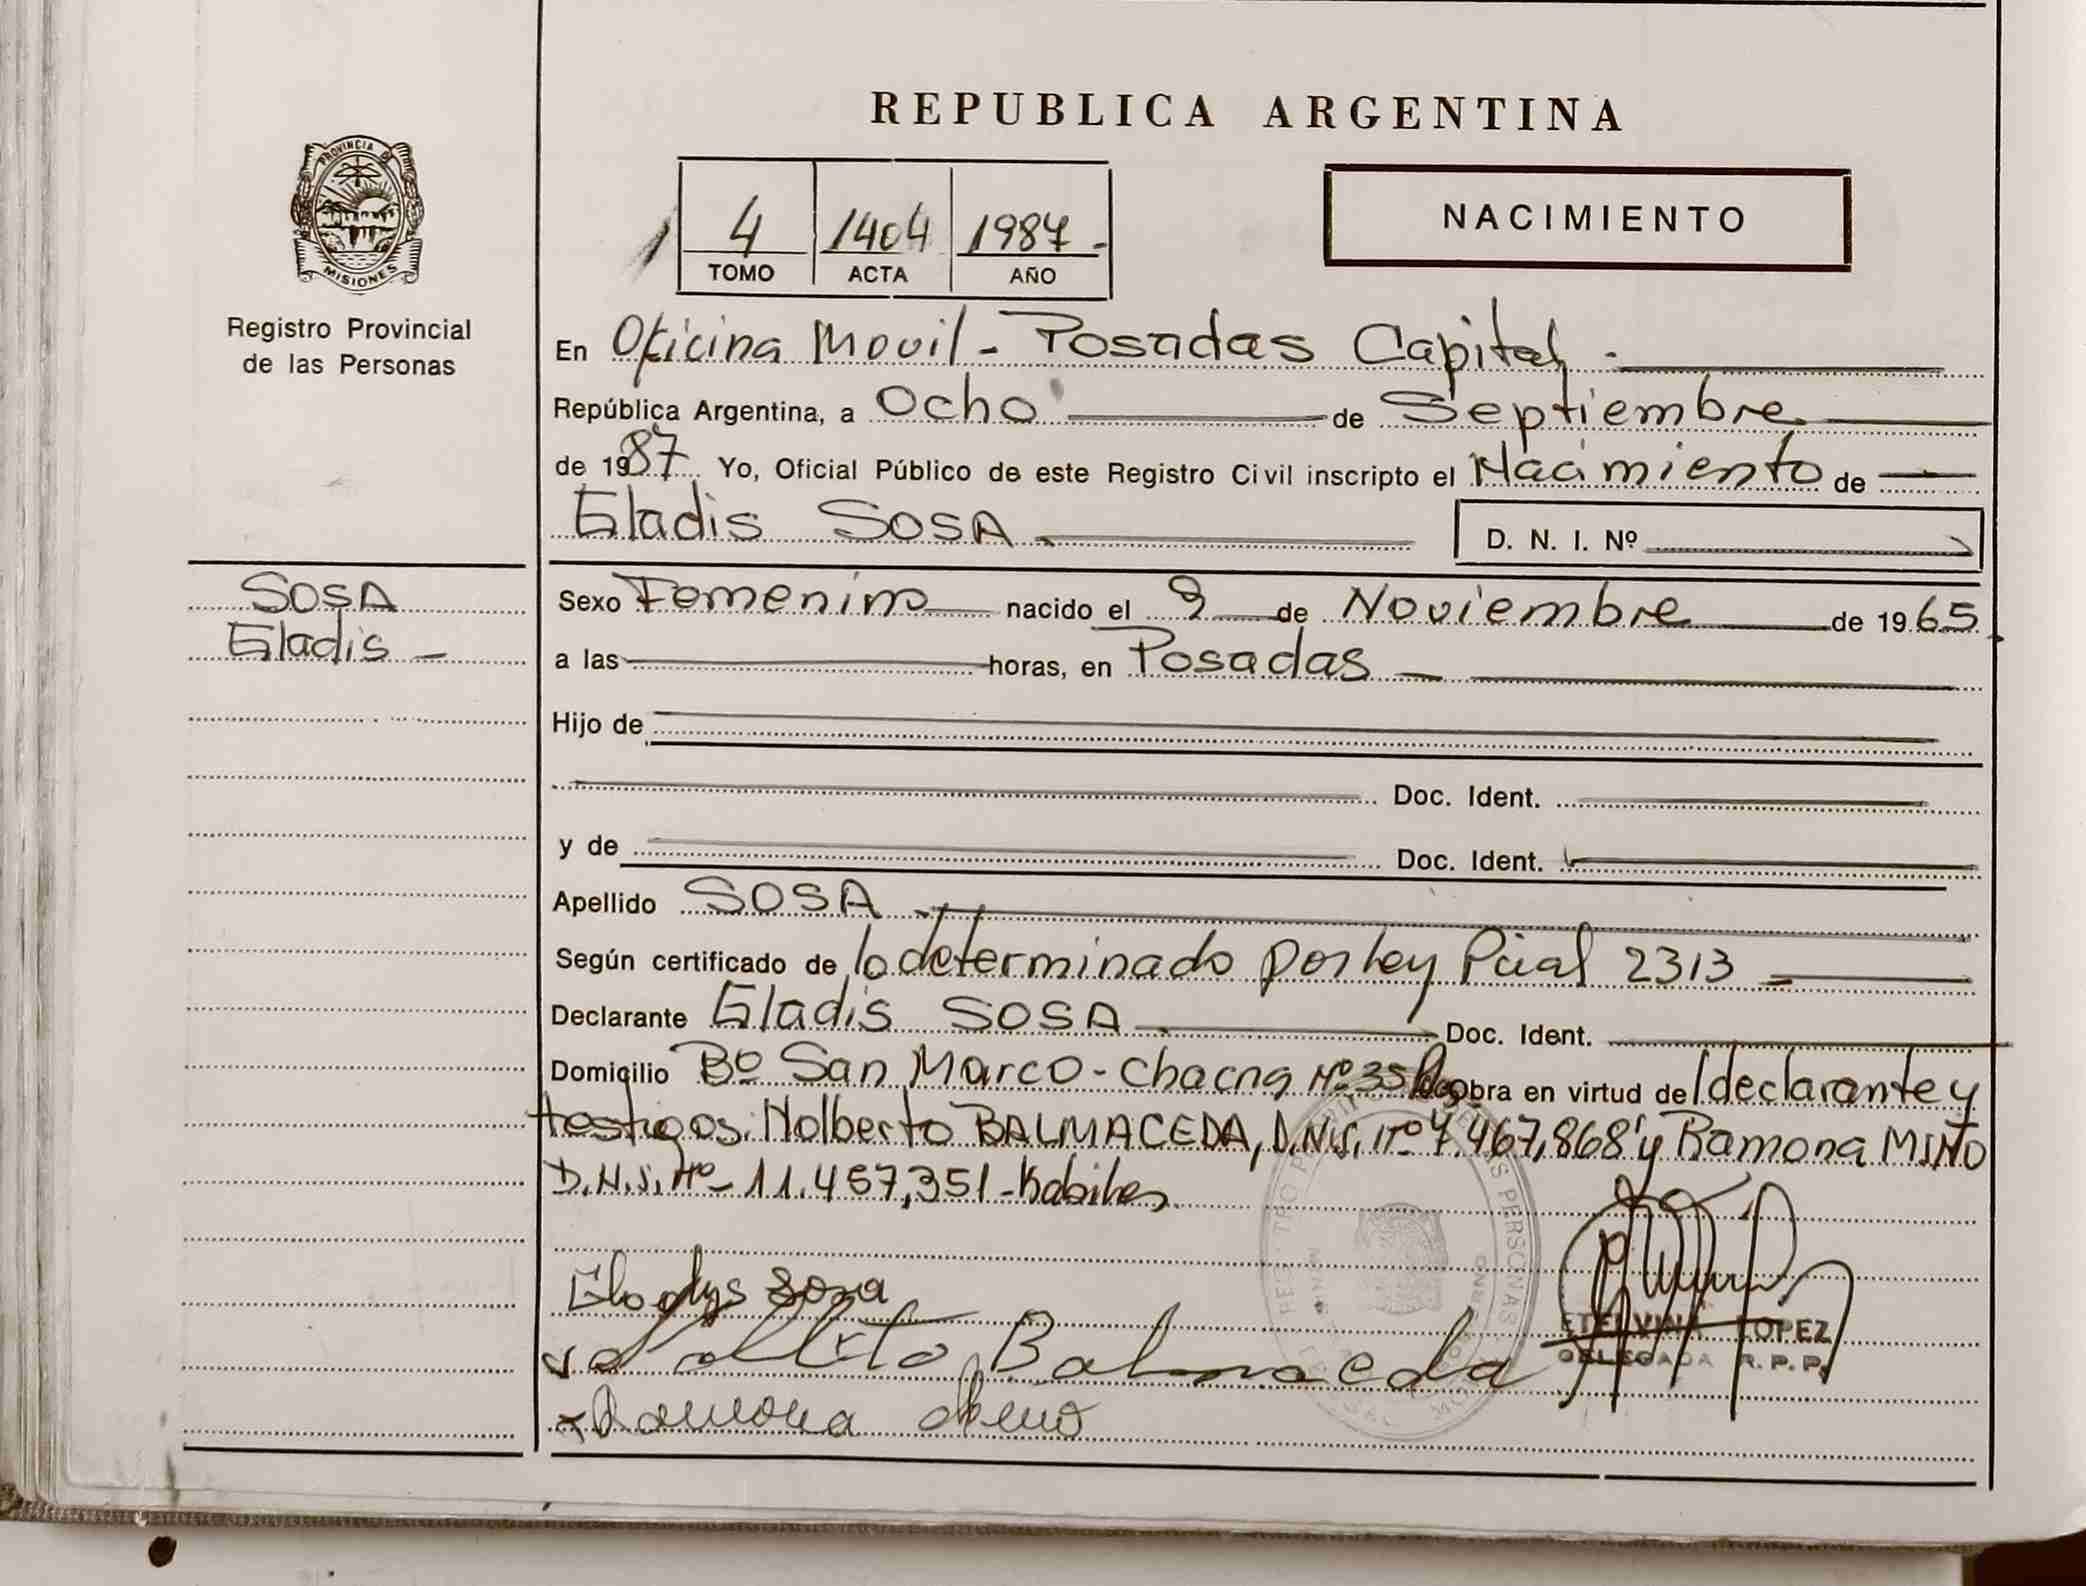 REPUBLICA ARGENTINA
PROVINCIA DE
MISIONES
Registro Provincial
de las Personas
4 1404 1987
TOMO ACTA AÑO
NACIMIENTO
En Oficina Movil - Posadas Capital.
República Argentina, a Ocho de Septiembre
de 1987 Yo, Oficial Público de este Registro Civil inscripto el Nacimiento de
Gladis SOSA
D. N. I. Nº
SOSA
Gladis -
Sexo Femenino nacido el 9 de Noviembre de 1965
a las horas, en Posadas
Hijo de
Doc. Ident.
y de Doc. Ident.
Apellido SOSA
Según certificado de lo determinado por ley Pcial 2313
Declarante Gladis SOSA Doc. Ident.
Domicilio Bº San Marco - Chacna Nº 35 obra en virtud de declarante y
testigos: Nolberto BALMACEDA, D.N.I. nº 7.467,868 y Ramona MINO
D.N.I. Nº - 11.457,351 - habiles
Gladys Sosa
Balmaceda
Ramona
ETELVINA LOPEZ
DELEGADA R.P.P.